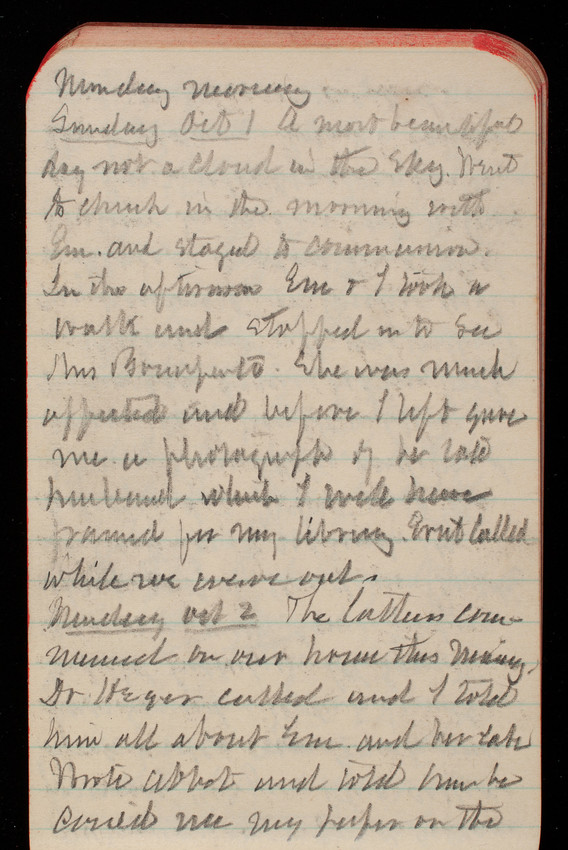 Monday morning
Sunday Oct 1 A most beautiful
day not a cloud in the sky. Went
to church in the morning with
Em. and stayed to communion.
In the afternoon Em & I took a
walk and stopped in to see
Mrs She was much
affected and before I left gave
me a photograph of her late
husband which I will have
framed for my library. called
while we were out.
Monday Oct 2 The com-
menced on our house this morning.
Dr called and I told
him all about Em. and her
Wrote Abbot and told him he
could use my paper on the